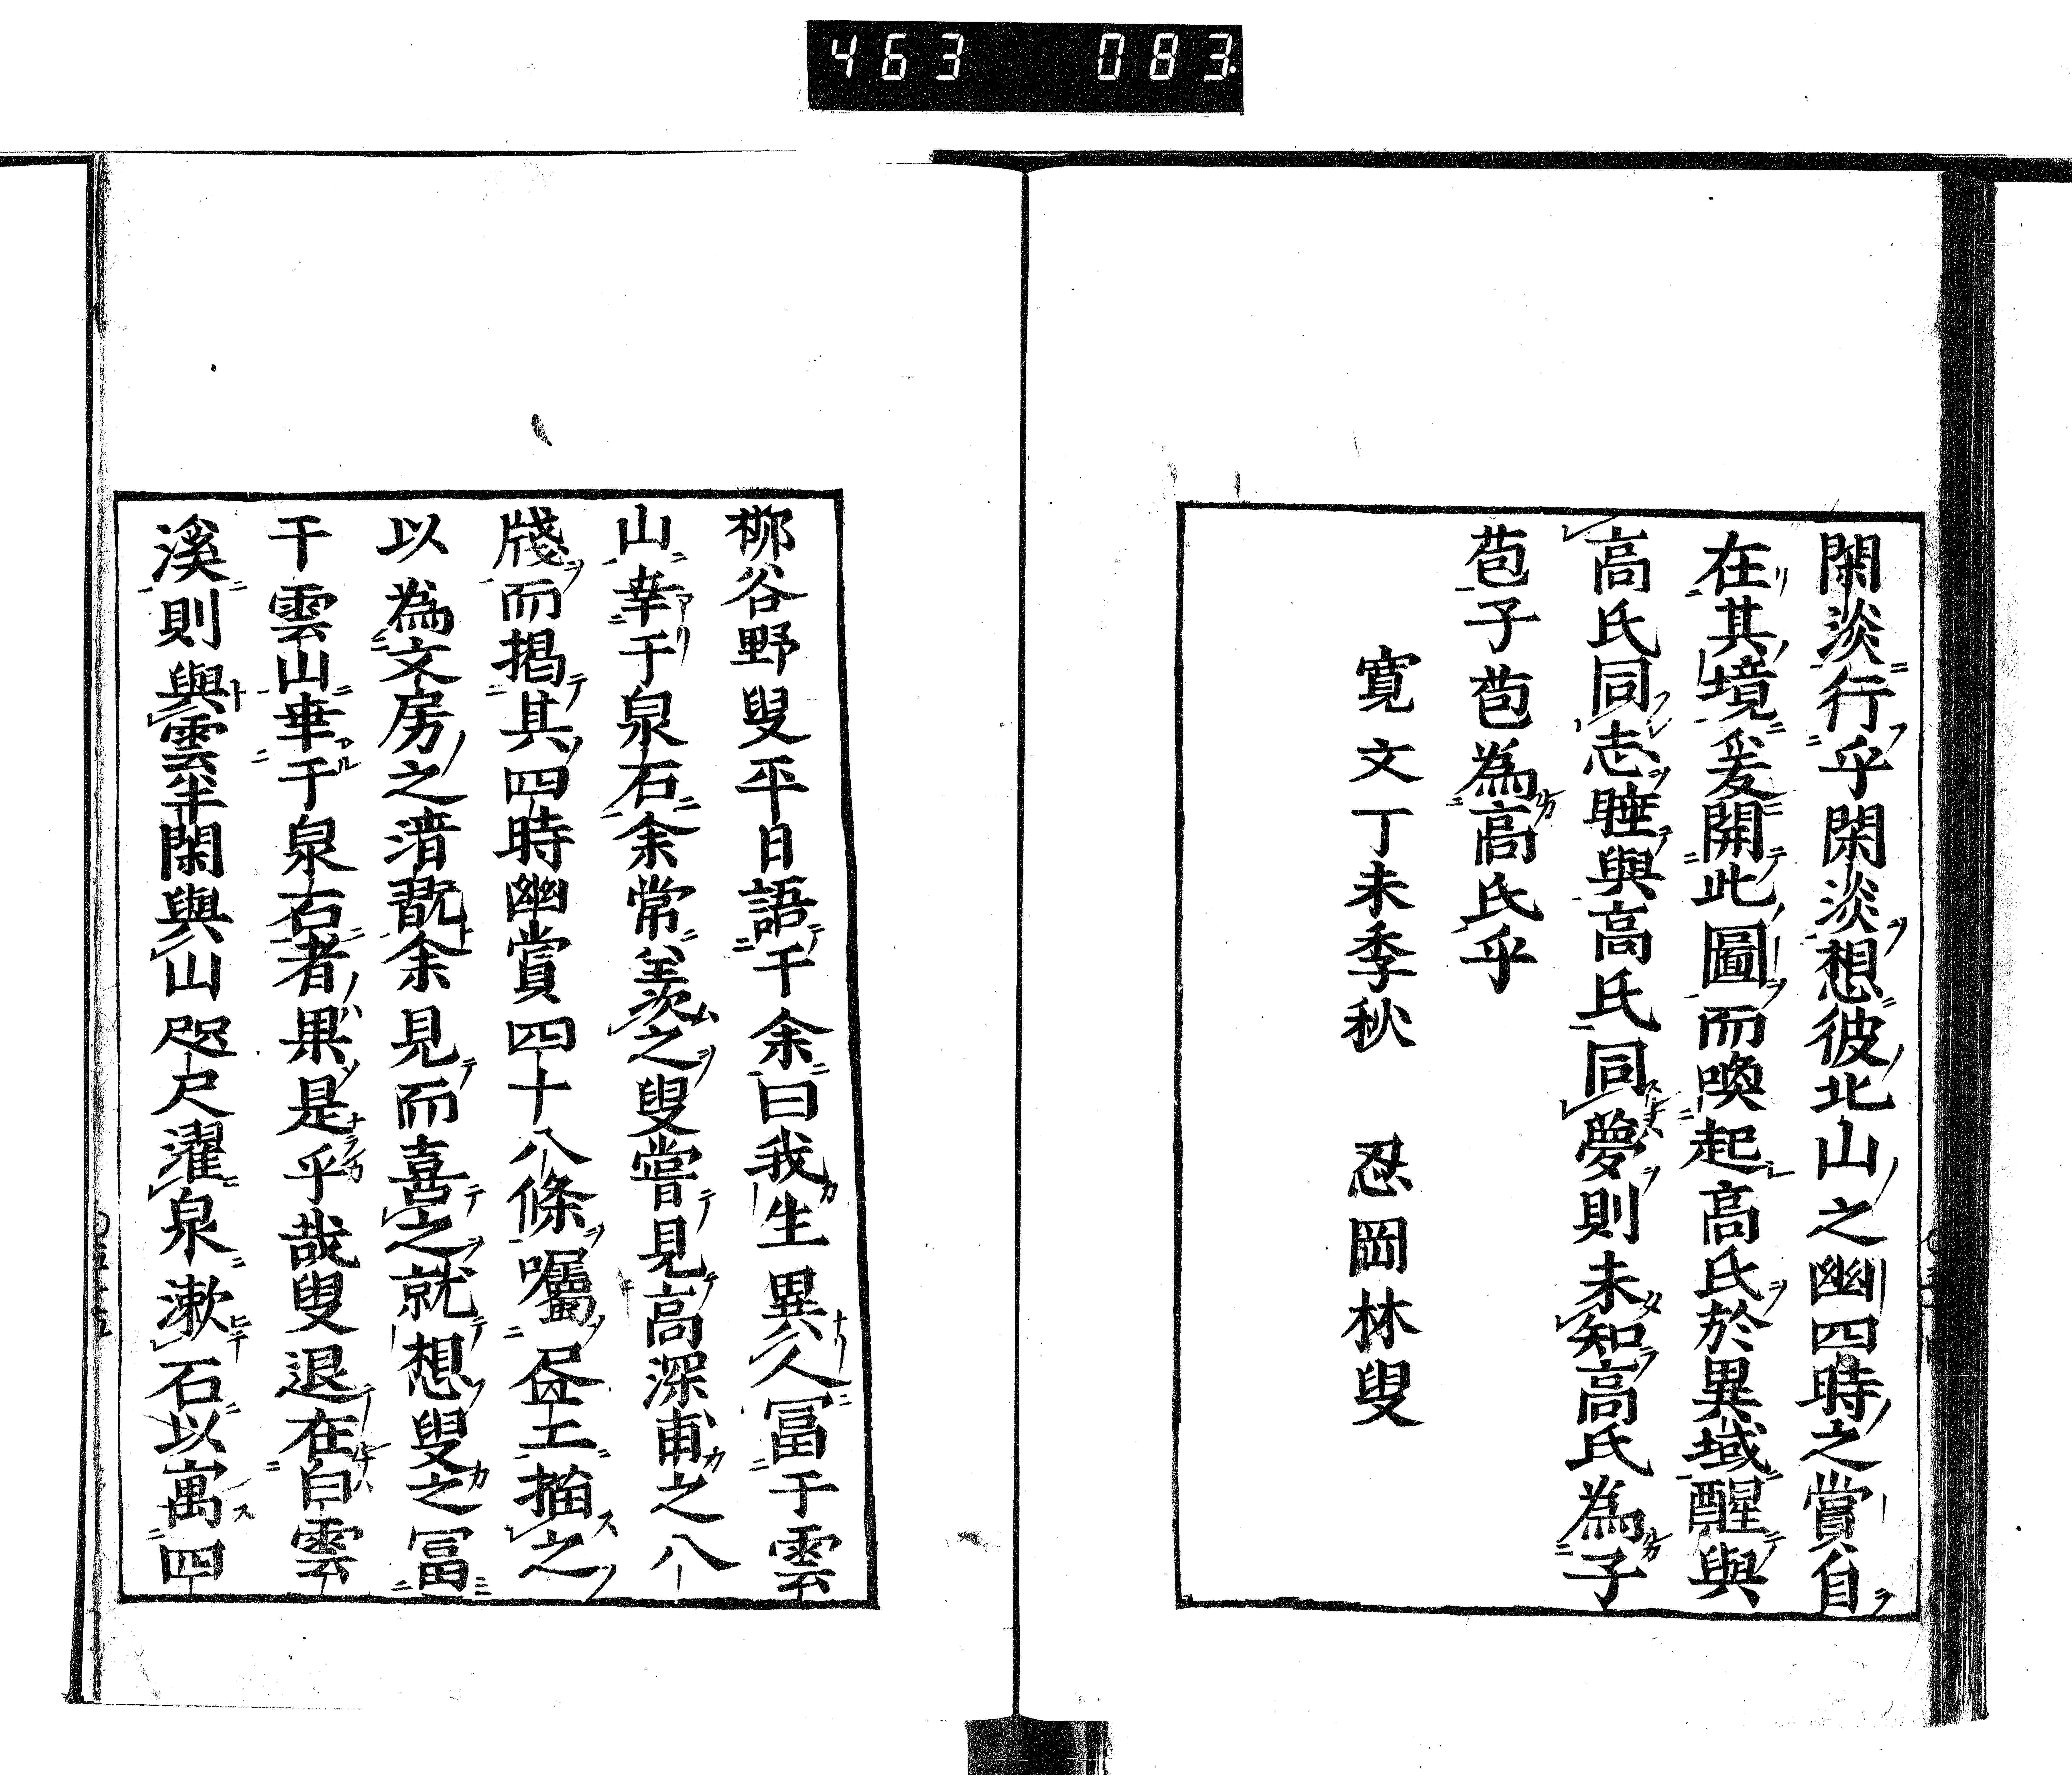 463 083
閑淡行乎閑淡想彼北山之幽四時之賞自
在其境爰開此圖而喚起高氏於異域醒與
高氏同志睡與高氏同夢則未知高氏為子
苞子苞為高氏乎
寛文丁未季秋 忍岡林叟
柳谷野叟平日語于余曰我生異久冨于雲
山幸于泉石余常羨之叟嘗見高深甫之八
牋而掲其四時幽賞四十八條囑昼工描之
以為文房之清翫余見而喜之就想叟之冨
于雲山幸于泉石者果是乎哉叟退在白雲
溪則與雲半閑與山咫尺濯泉漱石以寓四